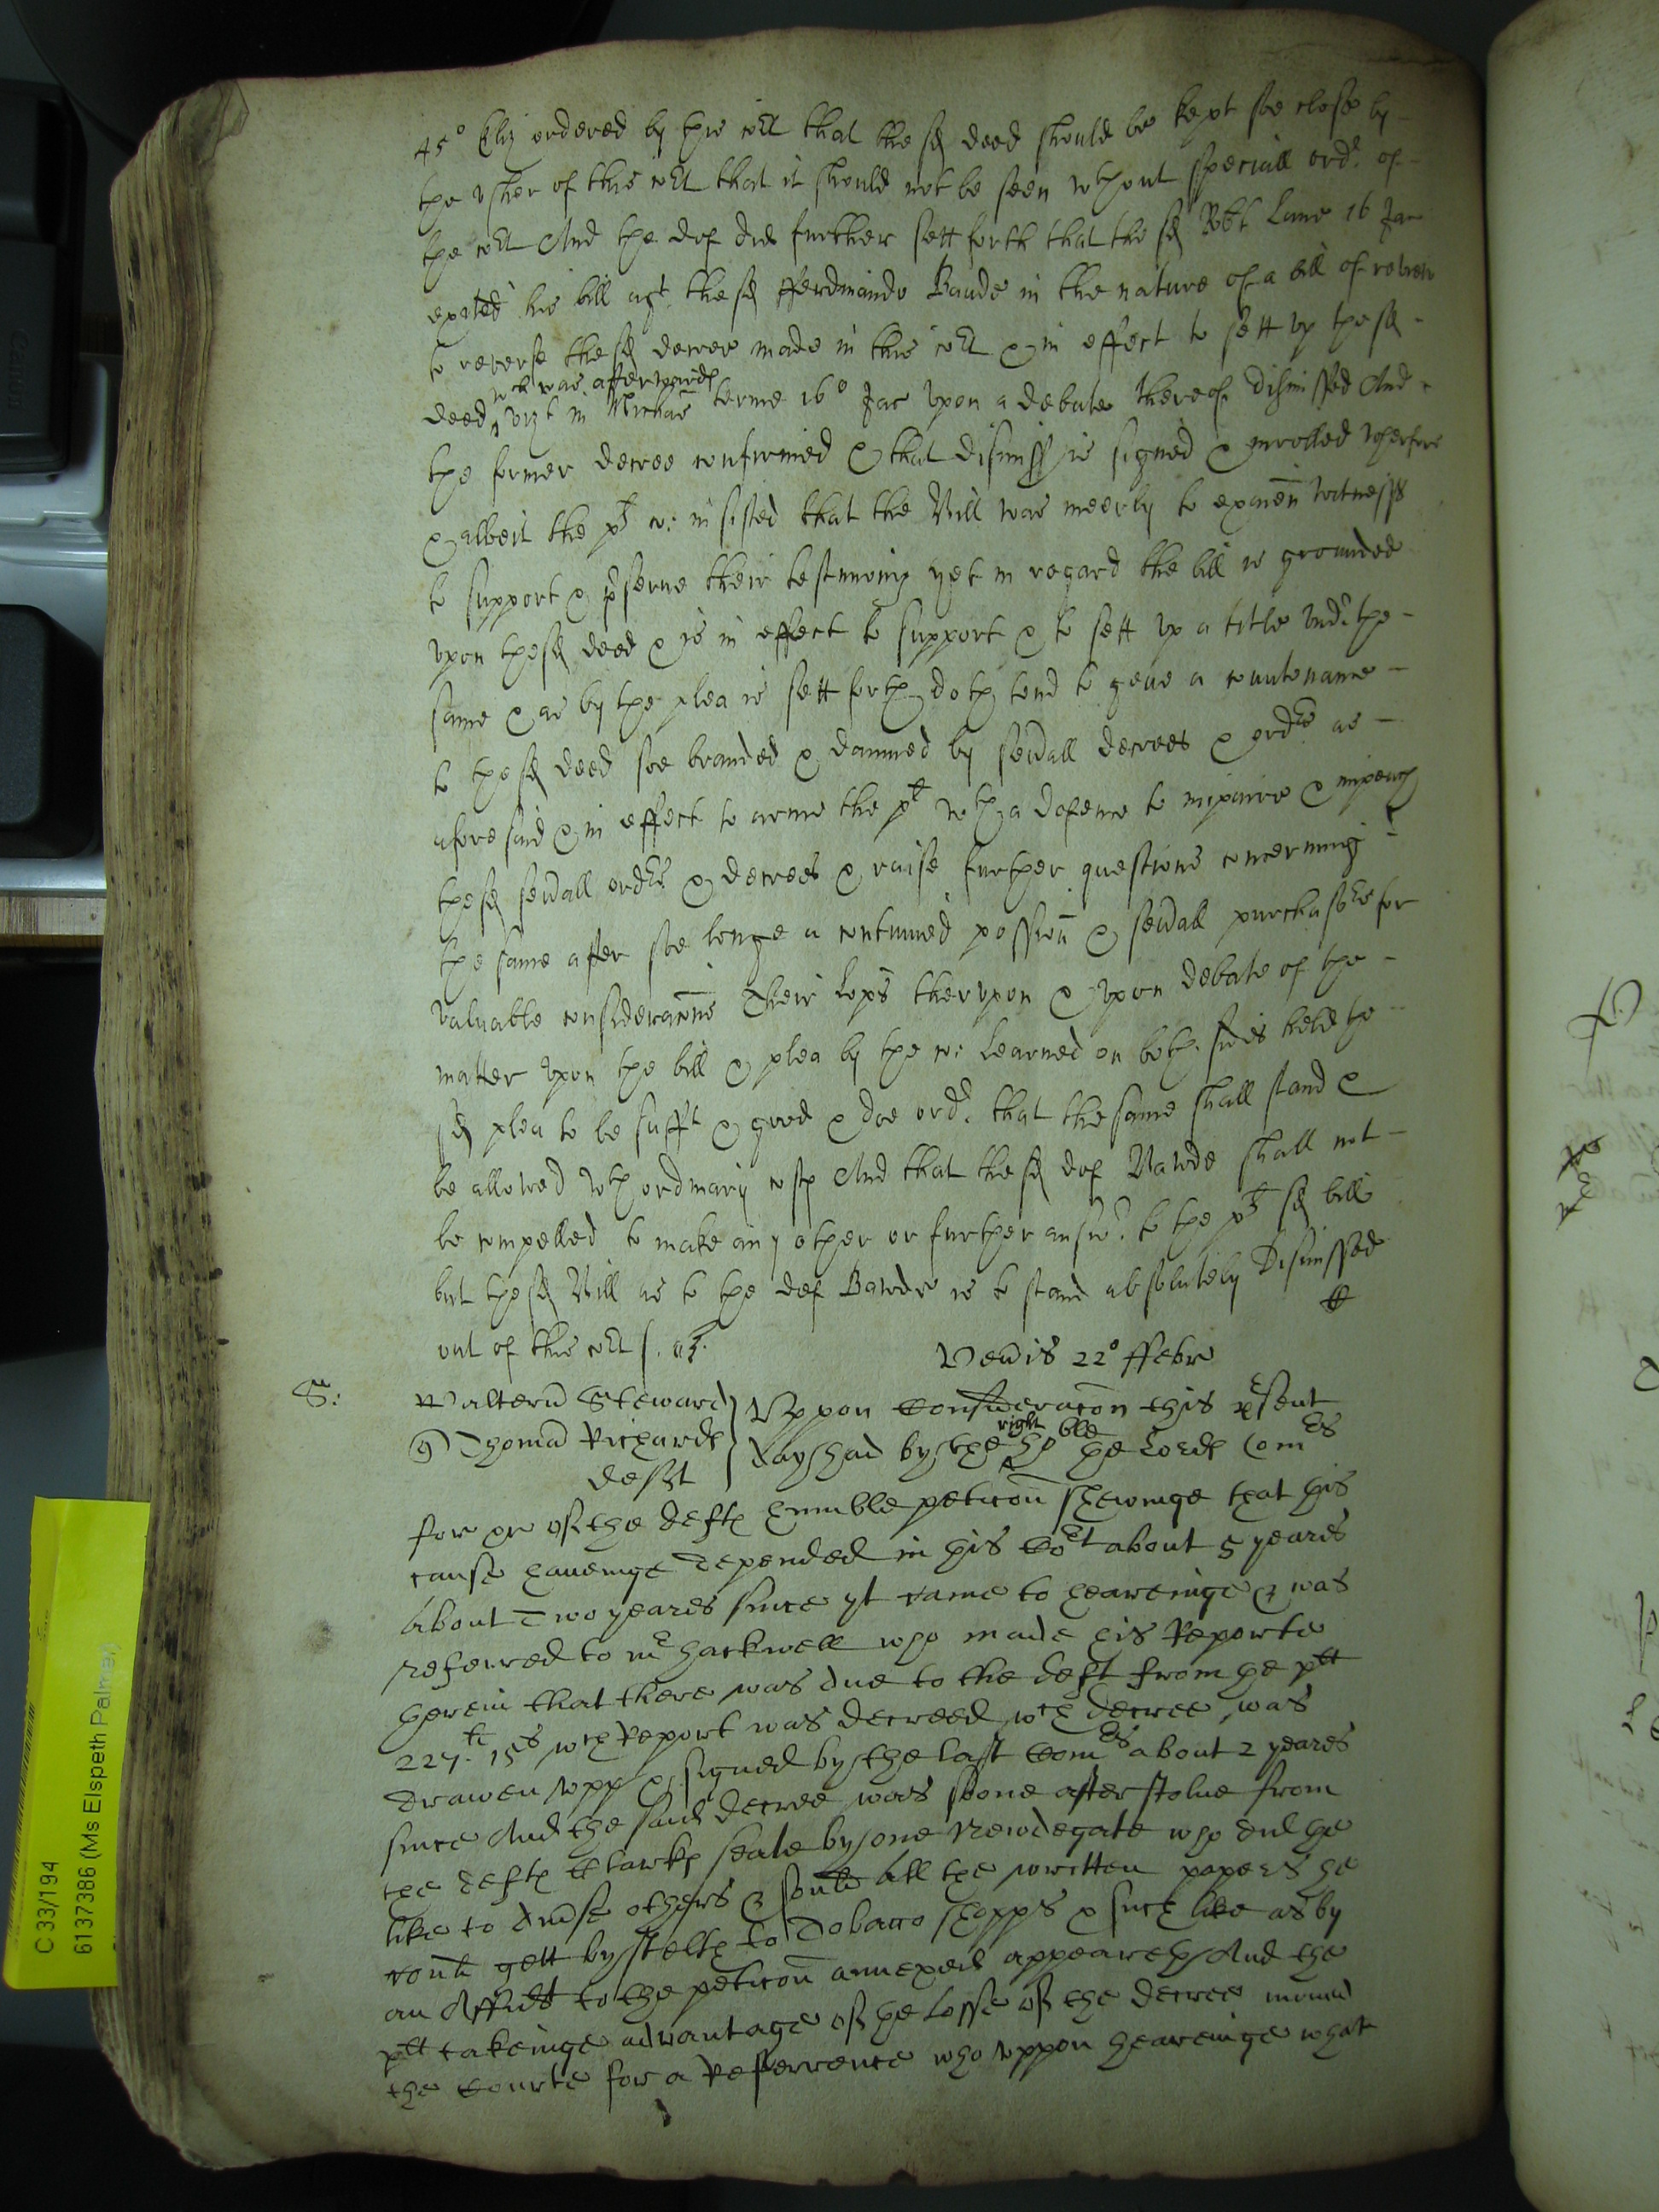 45° Eliz ordered by this co:rt that the sd deed should be kept soe close by
the vsher of this co:rt that it should not be seen wthout speciall ordr of
the co:rt And the def did further sett forth that the sd Robt Lane 16 Jac
exited his bill agt the sd fferdinando Baude in the nature of a bill of review
to reverse the sd decree made in this co:rt & in effect to sett vp the sd
wch was afterwards
deed vizt in Michas terme 16° Jac vpon a debate thereof dismissed And
the former decree confirmed & that dismiss is signed & inrolled Wherfore
& albeit the plt co: insisted that the Bill was meerly to examen witnesses
to support & pserue their testimony yet in regard the bill is grounded
vpon the sd deed & is in effect to support & to sett vp a title vndr the
same & as by the plea is sett forth doth tend to geue a countenance
to the sd deed soe branded & damned by seuall decrees & ordrs as
aforesaid & in effect to arme the plt wth a defence to impaire & impeach
the sd seuall ordrs & decrees & raise further questions concerning
the same after soe longe a continued possion & seuall purchasors for
valuable consideracons Their Lopps thervpon & vpon debate of the
matter vpon the bill & plea by the co: Learned on both sides held the
sd plea to be sufft & good & doe ordr that the same shall stand &
be allowed wth ordinary costs And that the sd def Bawde shall not
be compelled to make any other or further answr to the plt sd bill
but the sd Bill as to the def Bawde is to stand absolutely Dismissed
out of this co:rt
Venis 22° ffebr
S:
Walterus Steward
Thomas Richards
deft
Vppon Consideracon this psent
right ble
day had by the ho the Lords Comrs
for of the defts humble peticon shewinge that this
cause haueinge depended in this Cort about 5 yeares
About Two yeares since yt came to heareinge & was
referred to mr Hackwell who made his Reporte
herein that there was due to the deft from the plt
227li 15s wch Report was decreed wch decree was
drawen vpp & signed by the last Comrs about 2 yeares
since And the said decree was soone after stolne from
the defts Clarks seate by one Newdegate who did the
like to diuse others & sould all the written papers he
could gett by stelth to Tobacco shopps & such like as by
an Affidt to the peticon annexed appeareth And the
plt takeinge advantage of the losse of the decree moued
the Courte for a Referrence who vppon heareinge what
C 33/194
6137386 (Ms Elspeth Palmer)